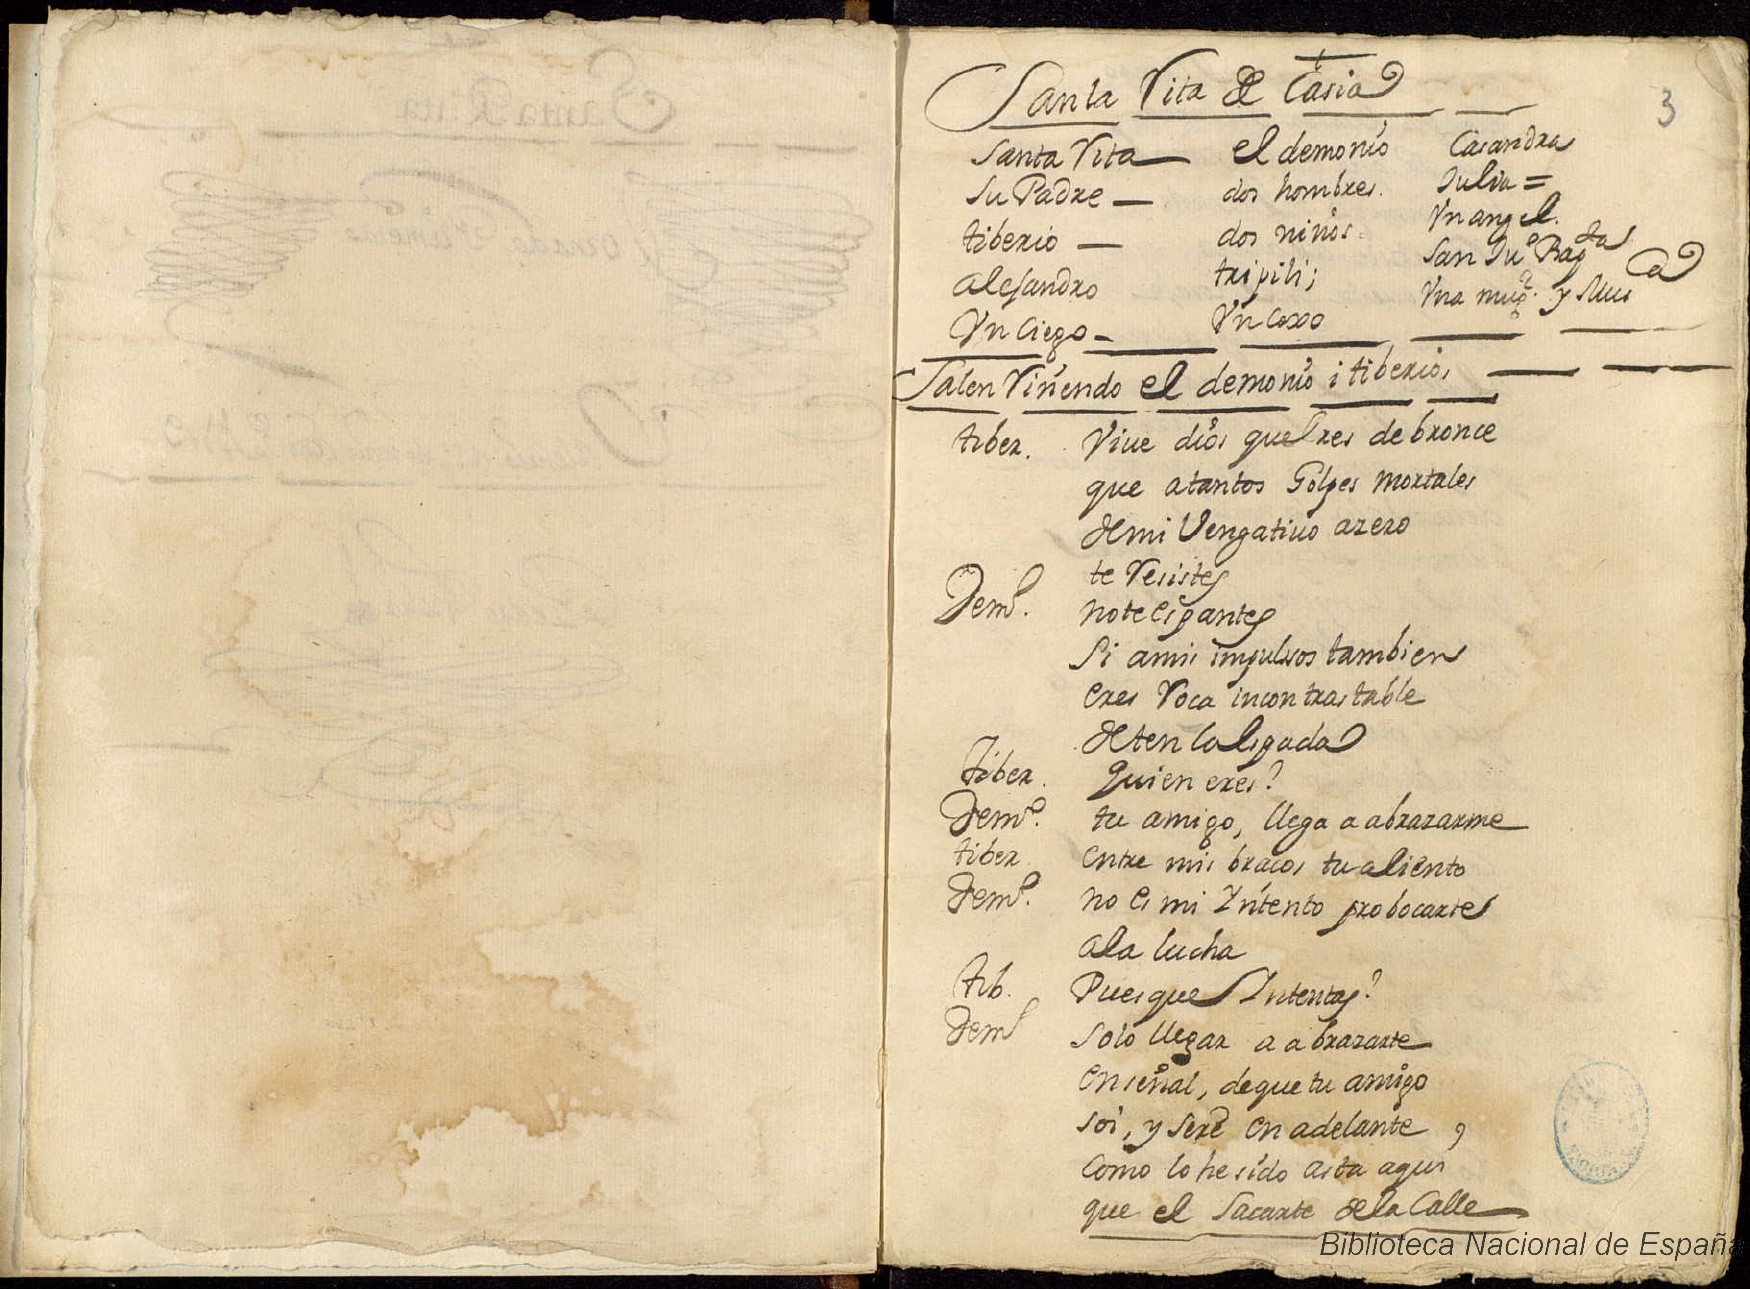 Santa Rita de Casia
3
Santa Rita el demonio Casandra
Su Padre dos hombres. Julia =
tiberio dos niños Un angel.
alesandro tripili; San Juº Bapta
Un Ciego Un Coxo Una mugr. y Musica
Salen Riñendo el demonio i tiberio,
tiber. Viue dios que eres de bronce
que atantos Golpes mortales
demi Vengatiuo azero
te Resistes
Demº. note espantes
Si amis impulsos tambien
eres Roca incontrastable
deten la espada
tiber. quien eres?
Demº. tu amigo, llega a abrazarme
tiber. entre mis braços tu aliento
Demº. no es mi Yntento probocarte
ala lucha
tib. Puesque Yntentas?
Demº solo llegar a abrazarte
en señal, deque tu amigo
soi, y seré en adelante,
como lo he sido asta aqui
que el Sacarte dela Calle
Biblioteca Nacional de España